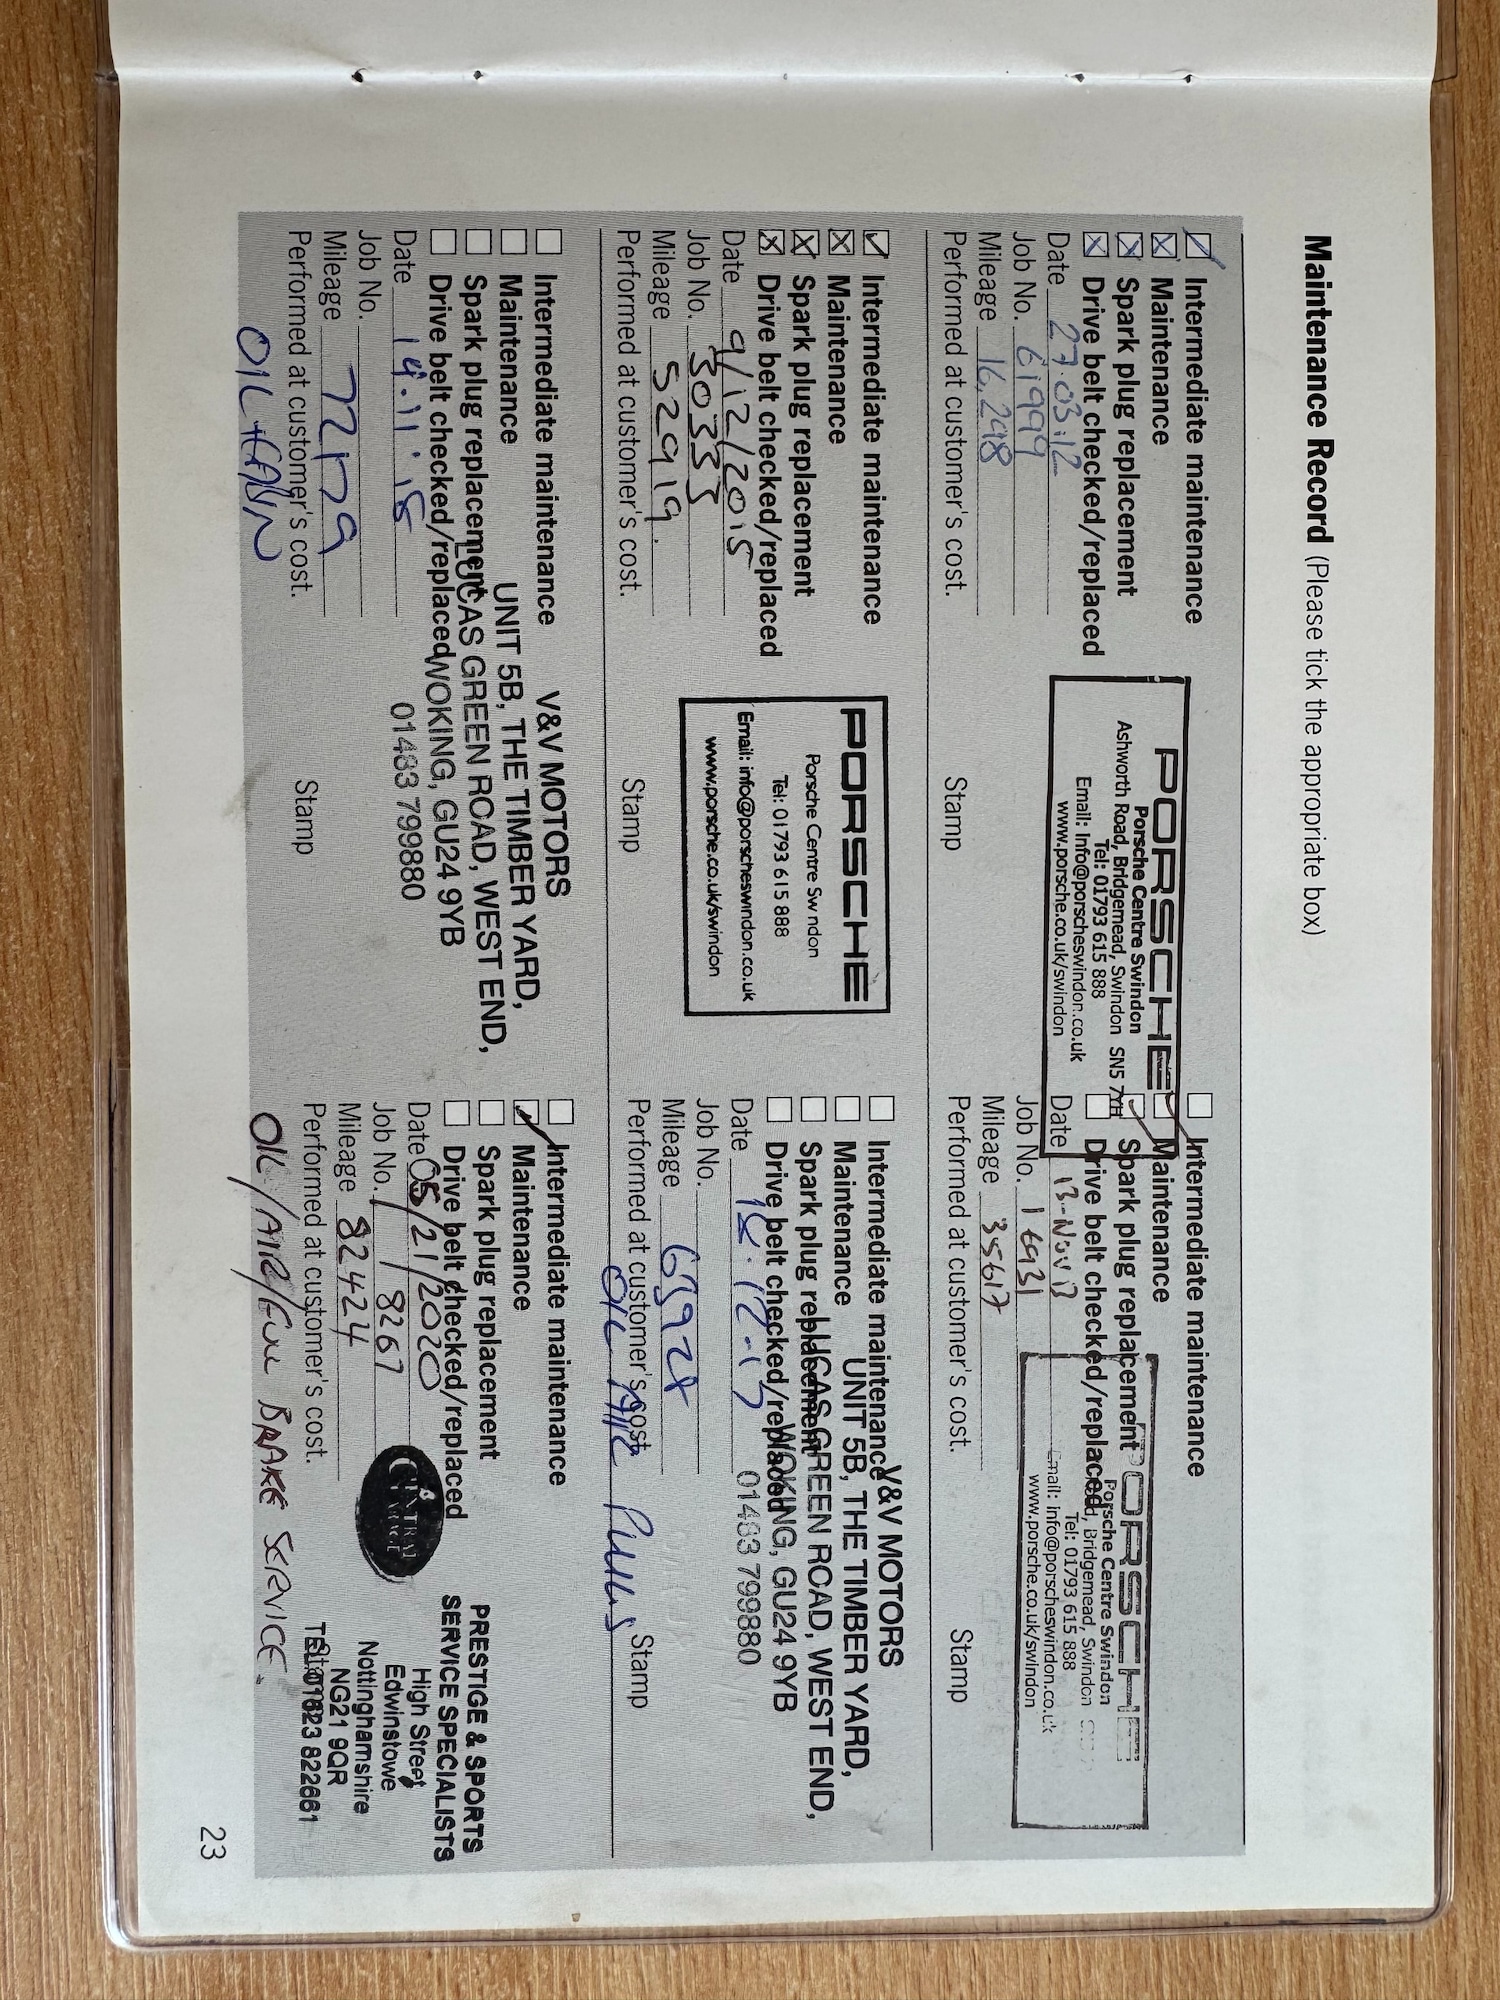 Maintenance Record (Please tick the appropriate box)
Intermediate maintenance
Maintenance
Spark plug replacement
Drive belt checked/replaced
Date 27.03.12
Job No. 61999
Mileage 16,298
Performed at customer's cost.
PORSCHE
Porsche Centre Swindon
Ashworth Road, Bridgemead, Swindon SN5 7YH
Tel: 01793 615 888
Email: Info@porscheswindon.co.uk
www.porsche.co.uk/swindon
Stamp
Intermediate maintenance
Maintenance
Spark plug replacement
Drive belt checked/replaced
Date 13-Nov 13
Job No. 16931
Mileage 35617
Performed at customer's cost.
PORSCHE
Porsche Centre Swindon
Bridgemead, Swindon
Tel: 01793 615 888
Email: info@porscheswindon.co.uk
www.porsche.co.uk/swindon
Stamp
Intermediate maintenance
Maintenance
Spark plug replacement
Drive belt checked/replaced
Date 9/12/2015
Job No. 30333
Mileage 52919.
Performed at customer's cost.
PORSCHE
Porsche Centre Swindon
Tel: 01793 615 888
Email: info@porscheswindon.co.uk
www.porsche.co.uk/swindon
Stamp
Intermediate maintenance
Maintenance
Spark plug replacement
Drive belt checked/replaced
Date
Job No.
Mileage
Performed at customer's cost.
OIL AIR PLUGS
V&V MOTORS
UNIT 5B, THE TIMBER YARD,
LUCAS GREEN ROAD, WEST END,
WOKING, GU24 9YB
01483 799880
Stamp
Intermediate maintenance
Maintenance
Spark plug replacement
Drive belt checked/replaced
Date 14.11.18
Job No.
Mileage 72179
Performed at customer's cost.
OIL + CABIN
V&V MOTORS
UNIT 5B, THE TIMBER YARD,
LUCAS GREEN ROAD, WEST END,
WOKING, GU24 9YB
01483 799880
Stamp
Intermediate maintenance
Maintenance
Spark plug replacement
Drive belt checked/replaced
Date 05/21/2020
Job No. 8267
Mileage 82424
Performed at customer's cost.
OIL/AIR/FUEL BRAKE SERVICE.
CENTRAL
GARAGE
PRESTIGE & SPORTS
SERVICE SPECIALISTS
High Street
Edwinstowe
Nottinghamshire
NG21 9QR
TEL 01623 822661
Stamp
23